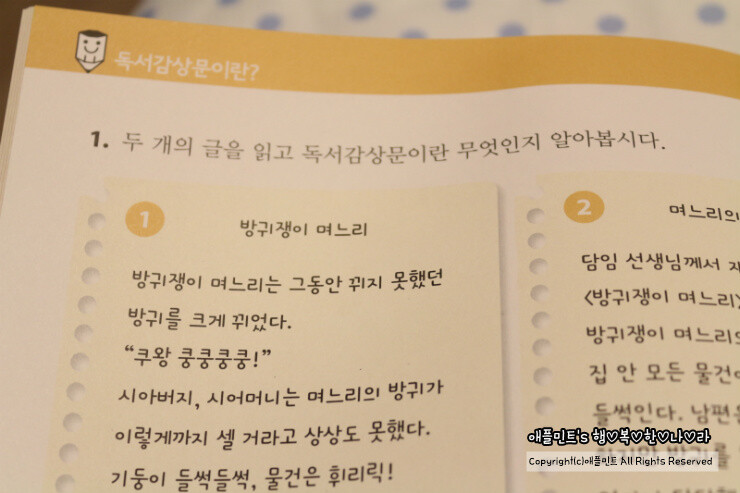 독서감상문이란?
1. 두 개의 글을 읽고 독서감상문이란 무엇인지 알아봅시다.
1
방귀쟁이 며느리
방귀쟁이 며느리는 그동안 뀌지 못했던
방귀를 크게 뀌었다.
“쿠왕 쿵쿵쿵쿵!”
시아버지, 시어머니는 며느리의 방귀가
이렇게까지 셀 거라고 상상도 못했다.
기둥이 들썩들썩, 물건은 휘리릭!
2
며느리의
담임 선생님께서
〈방귀쟁이 며느리〉
방귀쟁이 며느리
집 안 모든 물건
들썩인다. 남편
애플민트's 행♡복♡한♡나♡라
Copyright(c)애플민트 All Rights Reserved